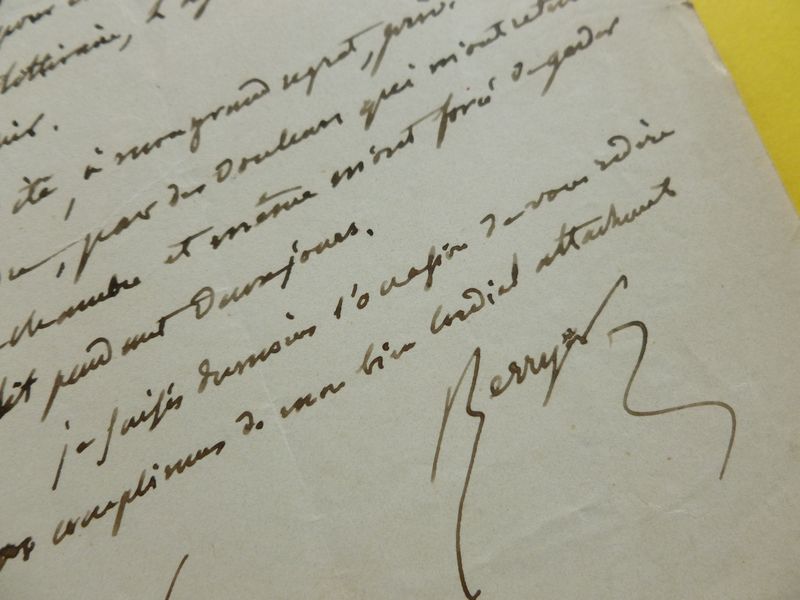 pour
littéraire,
été, à mon grand regret, privé
par des douleurs qui m'ont retenu
chambre et même m'ont forcé de garder
lit pendant deux jours.
je saisis du moins l'occasion de vous redire
compliments de mon bien cordial attachement
Berryer